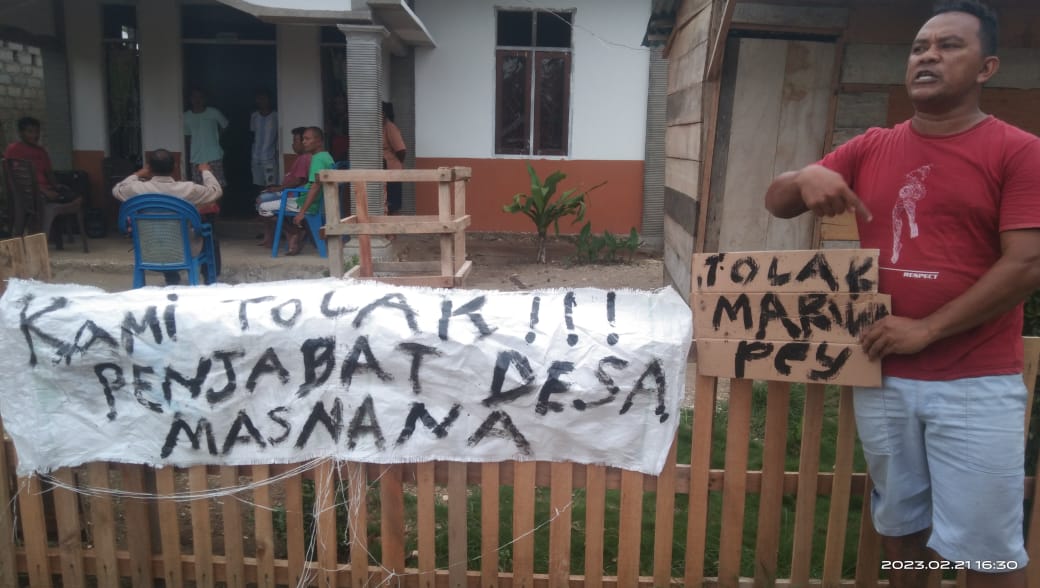 Kami TOLAK !!!
PENJABAT DESA
MASNANA
TOLAK
MARWA
PCY
RESPECT
2023.02.21 16:30